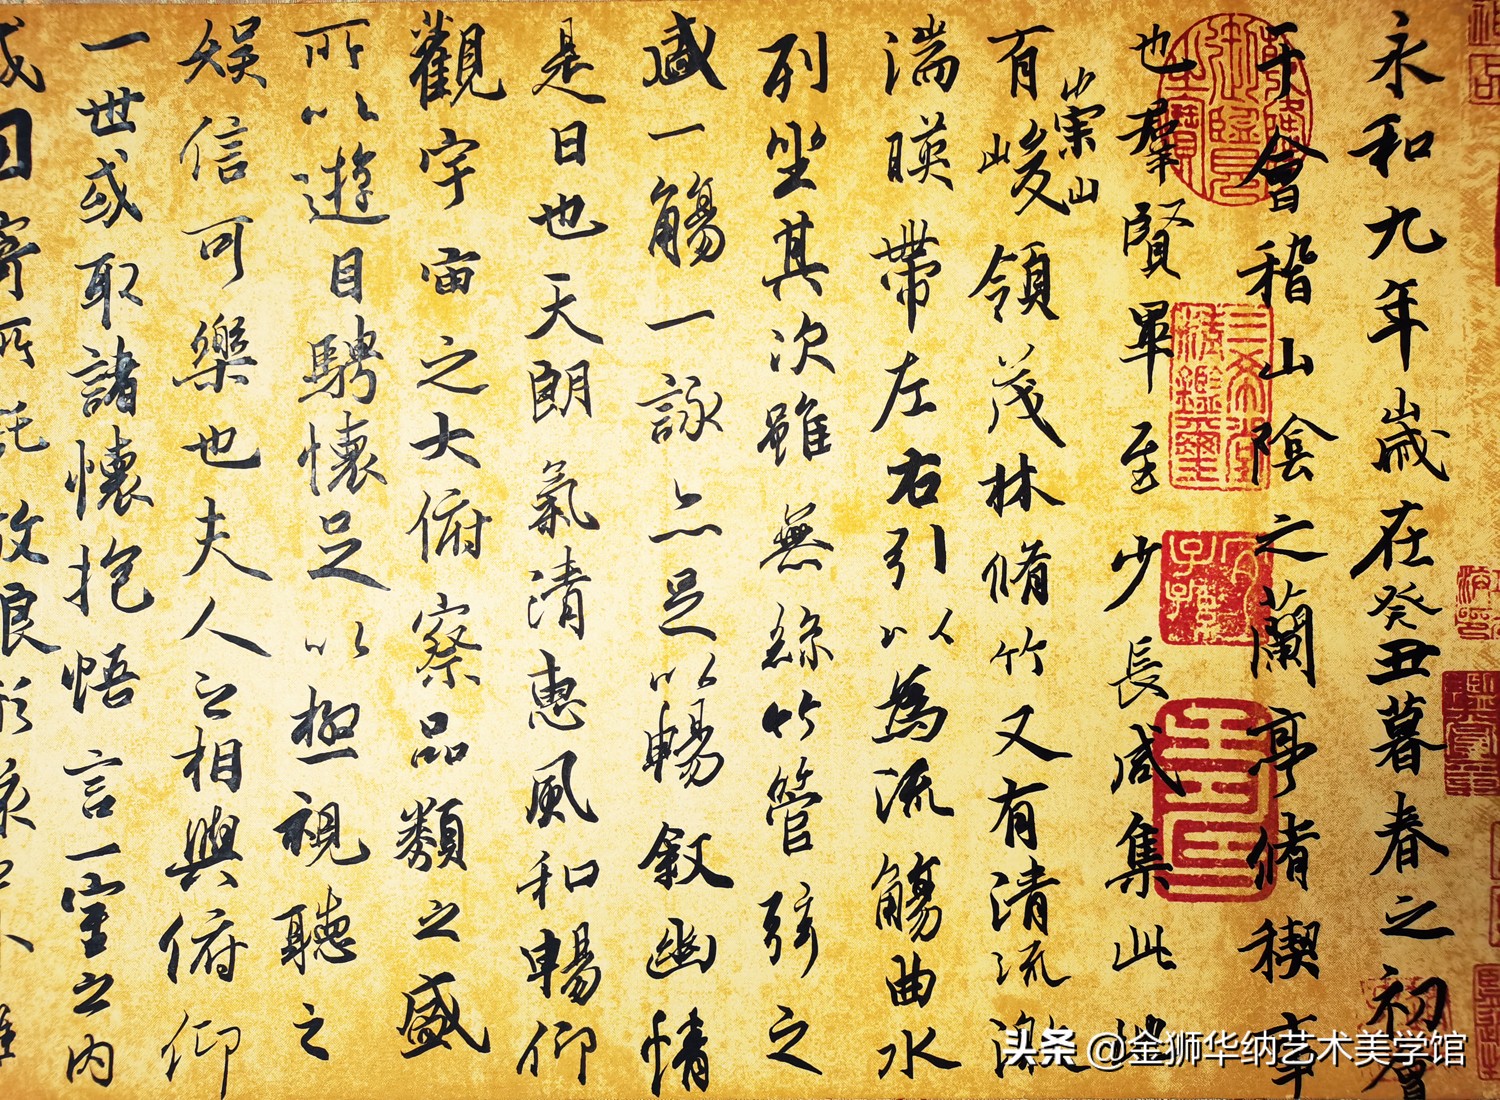 永和九年歲在癸丑暮春之初會
于會稽山陰之蘭亭脩禊事
也羣賢畢至少長咸集此地
有崇山峻領茂林脩竹又有清流激
湍暎帶左右引以為流觴曲水
列坐其次雖無絲竹管弦之
盛一觴一詠亦足以暢敘幽情
是日也天朗氣清惠風和暢仰
觀宇宙之大俯察品類之盛
所以遊目騁懷足以極視聽之
娛信可樂也夫人之相與俯仰
一世或取諸懷抱悟言一室之內
三希堂精鑑璽
乾隆御覽之寶
头条 @金狮华纳艺术美学馆